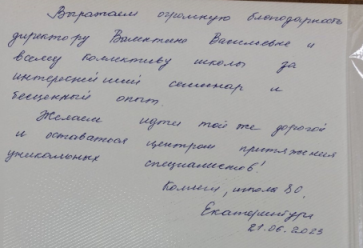 Выражаем огромную благодарность
директору Валентине Васильевне и
всему коллективу школы за
интереснейший семинар и
бесценный опыт.
Желаем идти той же дорогой
и оставаться центром притяжения
уникальных специалистов!
Коллеги, школа 80,
Екатеринбург
21.06.2023